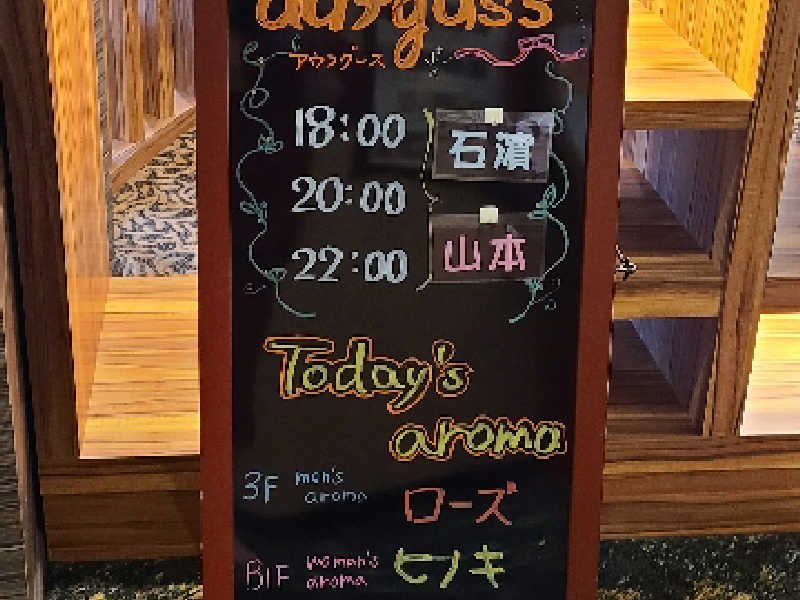 aufguss
アウフグース
18:00
石濵
20:00
22:00
山本
Today's
aroma
3F men's aroma ローズ
B1F woman's aroma ヒノキ